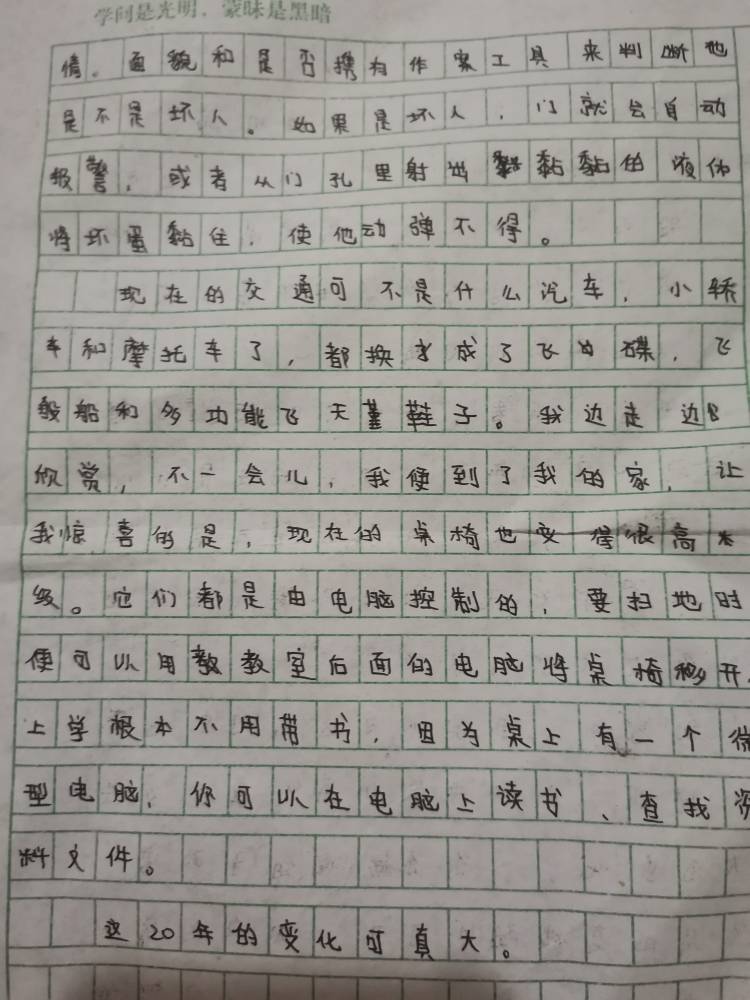 学问是光明，蒙昧是黑暗
情。面貌和是否携有作案工具来判断他
是不是坏人。如果是坏人，门就会自动
报警，或者从门孔里射出黏黏的液体
将坏蛋黏住，使他动弹不得。
现在的交通可不是什么汽车，小轿
车和摩托车了，都换成了飞碟，飞
般船和多功能飞天鞋子。我边走边
欣赏，不一会儿，我便到了我的家，让
我惊喜的是，现在的桌椅也变得很高
级。它们都是由电脑控制的，要扫地时
便可以用教室后面的电脑将桌椅移开，
上学根本不用带书，因为桌上有一个微
型电脑，你可以在电脑上读书、查找资
料文件。
这20年的变化可真大。